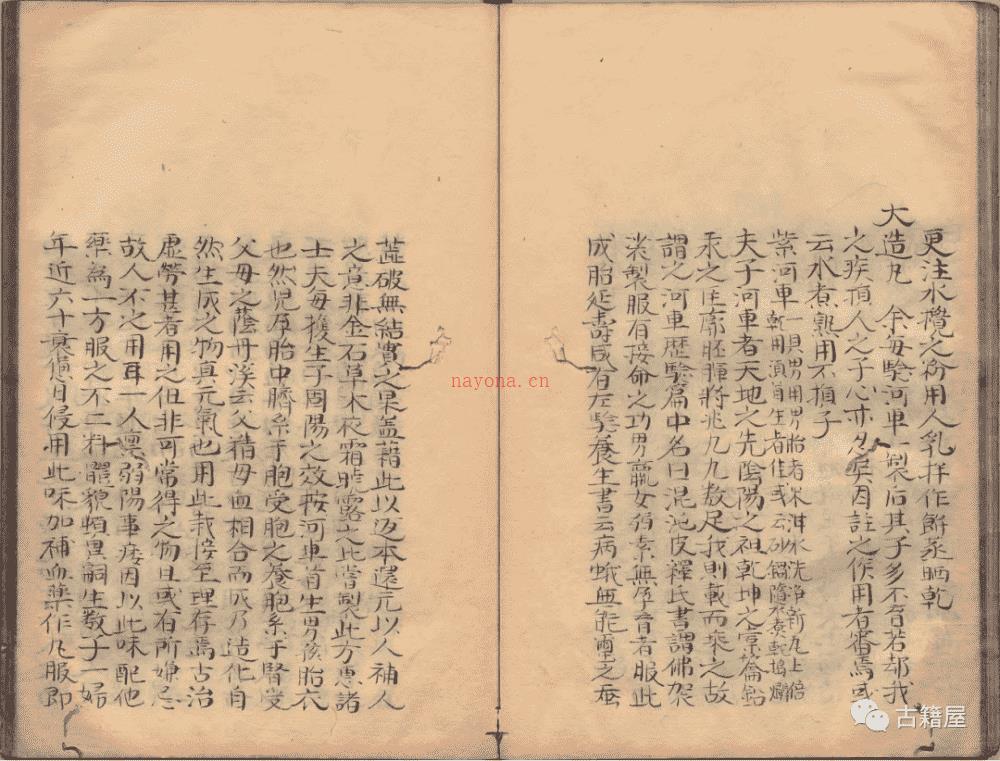 更注水攪之衍用人乳拌作餅蒸晒乾
大造丸 余每驗河車一製后其子多不育若却我
之疾損人之子心亦勿矣因註之作用者審焉或
云水煮熟用不損子
紫河車一具男用男胎者米泔水洗淨新瓦上焙
乾用須首生者佳或云砂鍋隨水煮乾搗爛
夫子河車者天地之先陰陽之祖乾坤之橐龠鉛
汞之匡廓胚腪將兆九九數足我則載而乘之故
謂之河車歷驗篇中名曰混沌皮釋氏書謂佛袈
裟製服有接命之功男羸女弱素無孕育者服此
成胎延壽咸有左驗養生書云病蛾無能璽之蚕
蕋破無結實之果蓋藉此以返本還元以人補人
之意非金石草木夜霜曉露之比嘗製此方惠諸
士夫每獲生子固陽之效按河車首生男孩胎衣
也然兒孕胎中臍系于胞受胞之養胞系于腎受
父母之蔭丹溪云父藉母血相合而成乃造化自
然生成之物真元氣也用此栽接至理存焉古治
虛勞甚者用之但非可常得之物且或有所嫌忌
故人不之用耳一人稟弱陽事痿因以此味配他
藥為一方服之不二料體貌頓異嗣生數子一婦
年近六十衰憊日侵用此味加補血藥作丸服即
nayona.cn
古籍屋